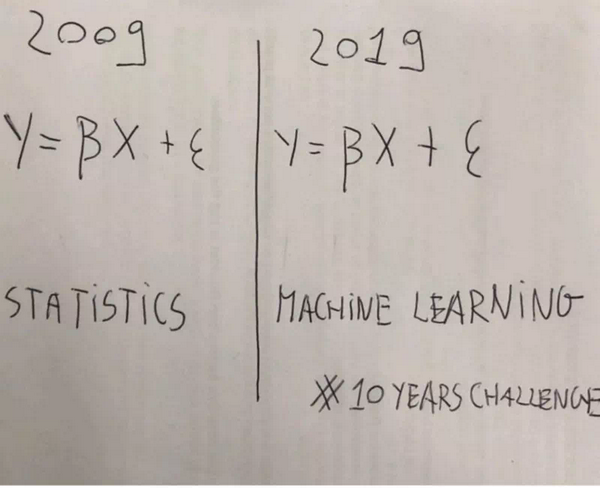 2009
Y = βX + ε
STATiSTiCS
2019
Y = βX + ε
MACHiNE LEARNiNG
# 10 YEARS CHALLENGE